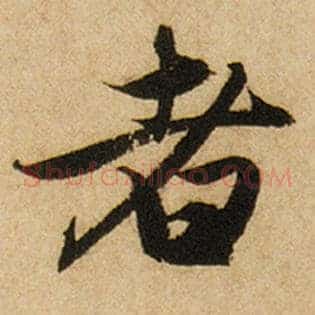 者
shufaniiao.com